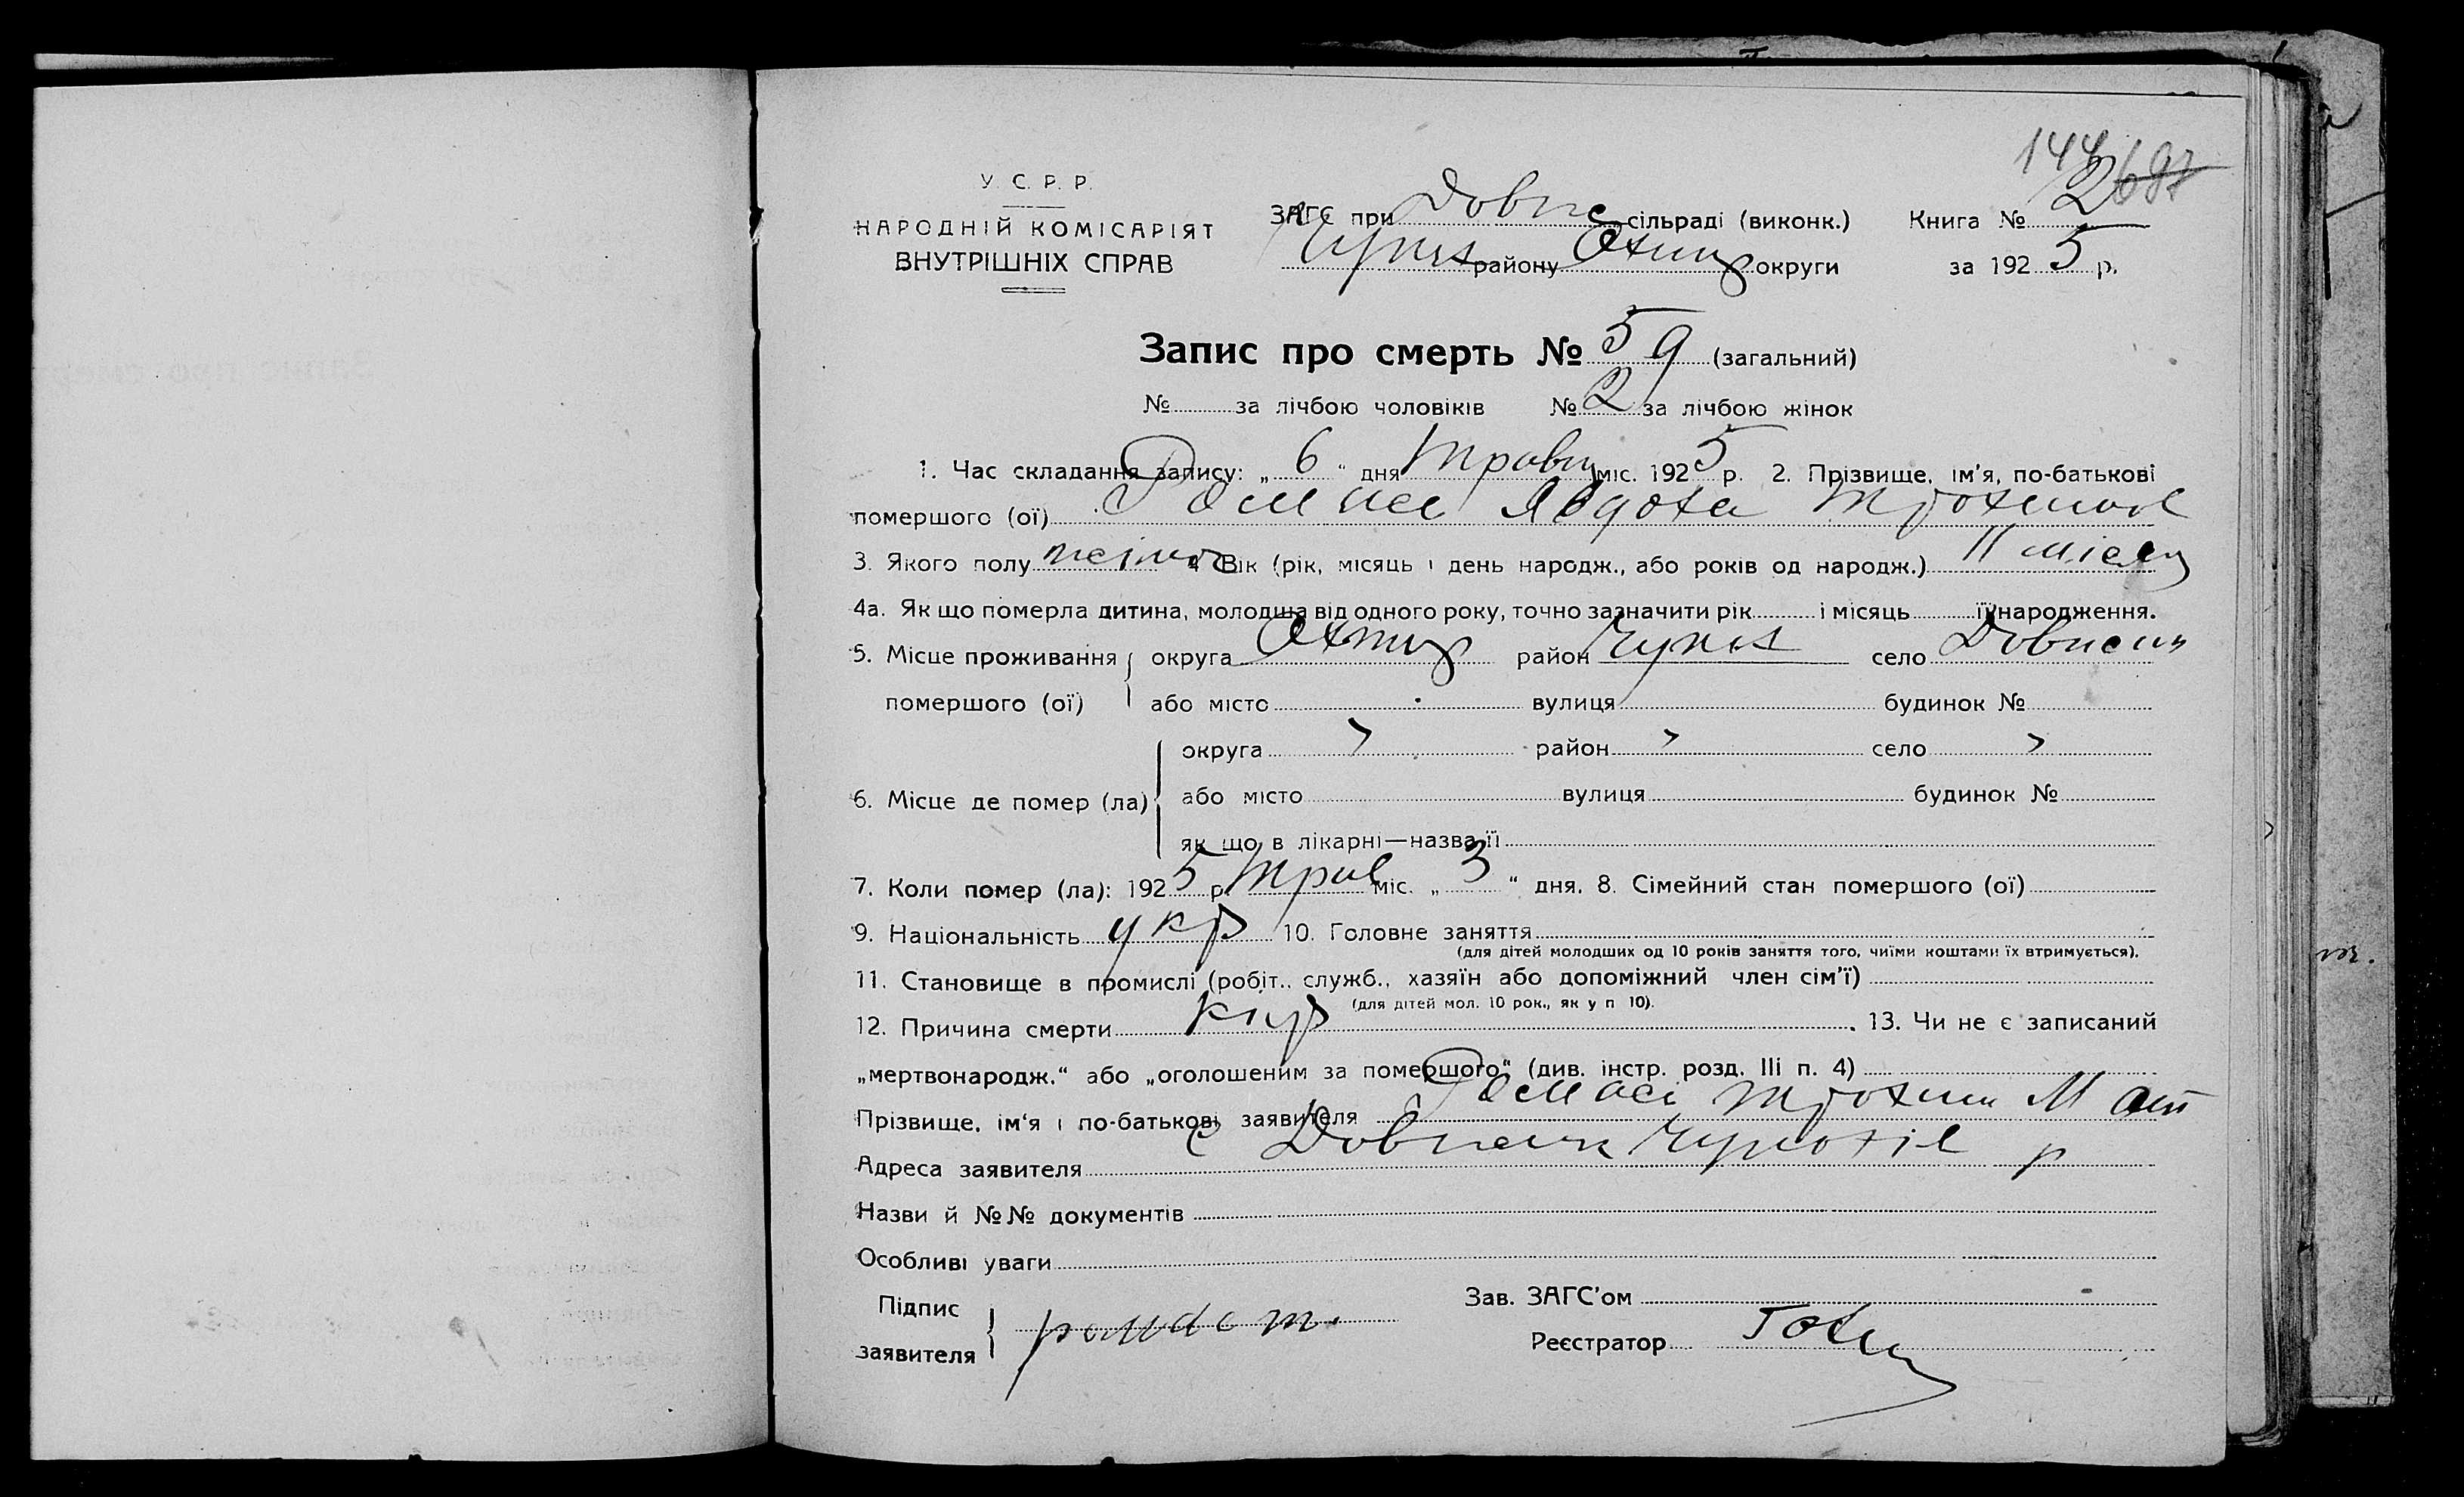 144 697
У. С. Р. Р.
НАРОДНІЙ КОМІСАРІЯТ
ВНУТРІШНІХ СПРАВ
ЗАГС при Добне сільраді (виконк.) Книга № 2
Чупах району Охтир округи за 1925 р.
Запис про смерть № 59 (загальний)
№ за лічбою чоловіків № 2 за лічбою жінок
1. Час складання запису: „ 6 “ дня Травн міс. 1925 р. 2. Прізвище, ім'я, по-батькові
помершого (ої) Явдоха Трохимов
3. Якого полу жіноч 4 Вік (рік, місяць і день народж., або років од народж.) 11 місяц
4а. Як що померла дитина, молодша від одного року, точно зазначити рік і місяць її народження.
5. Місце проживання округа Охтир район Чупах село
помершого (ої) або місто вулиця будинок №
округа район село
6. Місце де помер (ла) або місто вулиця будинок №
як що в лікарні—назва її
7. Коли помер (ла): 1925 р. Трав міс. „ 3 “ дня. 8. Сімейний стан помершого (ої)
9. Національність укр 10. Головне заняття
(для дітей молодших од 10 років заняття того, чиїми коштами їх втримується).
11. Становище в промислі (робіт., служб., хазяїн або допоміжний член сім'ї)
(для дітей мол. 10 рок., як у п 10).
12. Причина смерти кір . 13. Чи не є записаний
„мертвонародж.“ або „оголошеним за помершого“ (див. інстр. розд. III п. 4)
Прізвище, ім'я і по-батькові заявителя Трохим
Адреса заявителя с р
Назви й №№ документів
Особливі уваги
Підпис
заявителя
Зав. ЗАГС'ом
Реєстратор